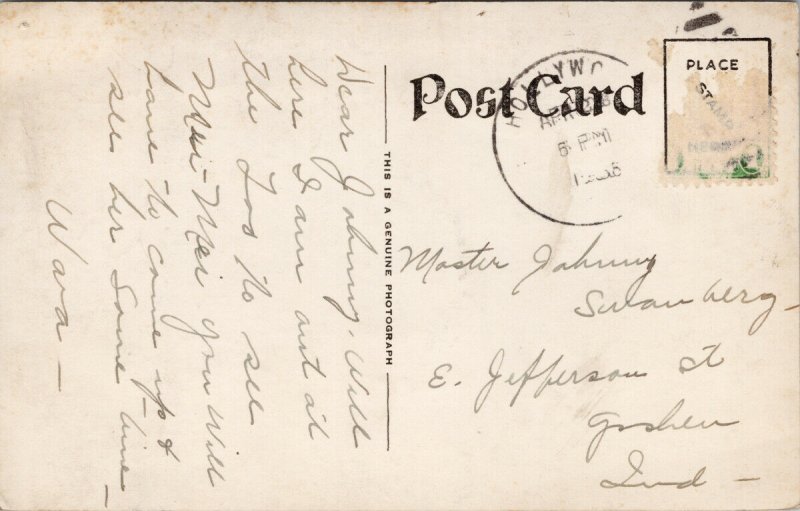 Dear Johnny. Well
here I am out at
the Zoo to see
Mei-Mei you will
have to come up &
see her some time -
Wava -
THIS IS A GENUINE PHOTOGRAPH
Post Card
HOLLYWO
APR
5 PM
PLACE
STAMP
HERE
Master Johnny
Swanberg -
E. Jefferson St
Goshen
Ind -